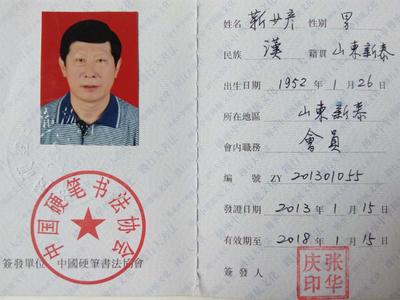 中国硬笔书法协会
簽發單位 中國硬筆書法協會
姓名 靳廿彦 性別 男
民族 漢 籍貫 山東新泰
出生日期 1952 年 1 月 26 日
所在地區 山東新泰
會内職務 會員
編號 ZY 201301055
發證日期 2013 年 1 月 15 日
有效期至 2018 年 1 月 15 日
簽發人 张华庆印